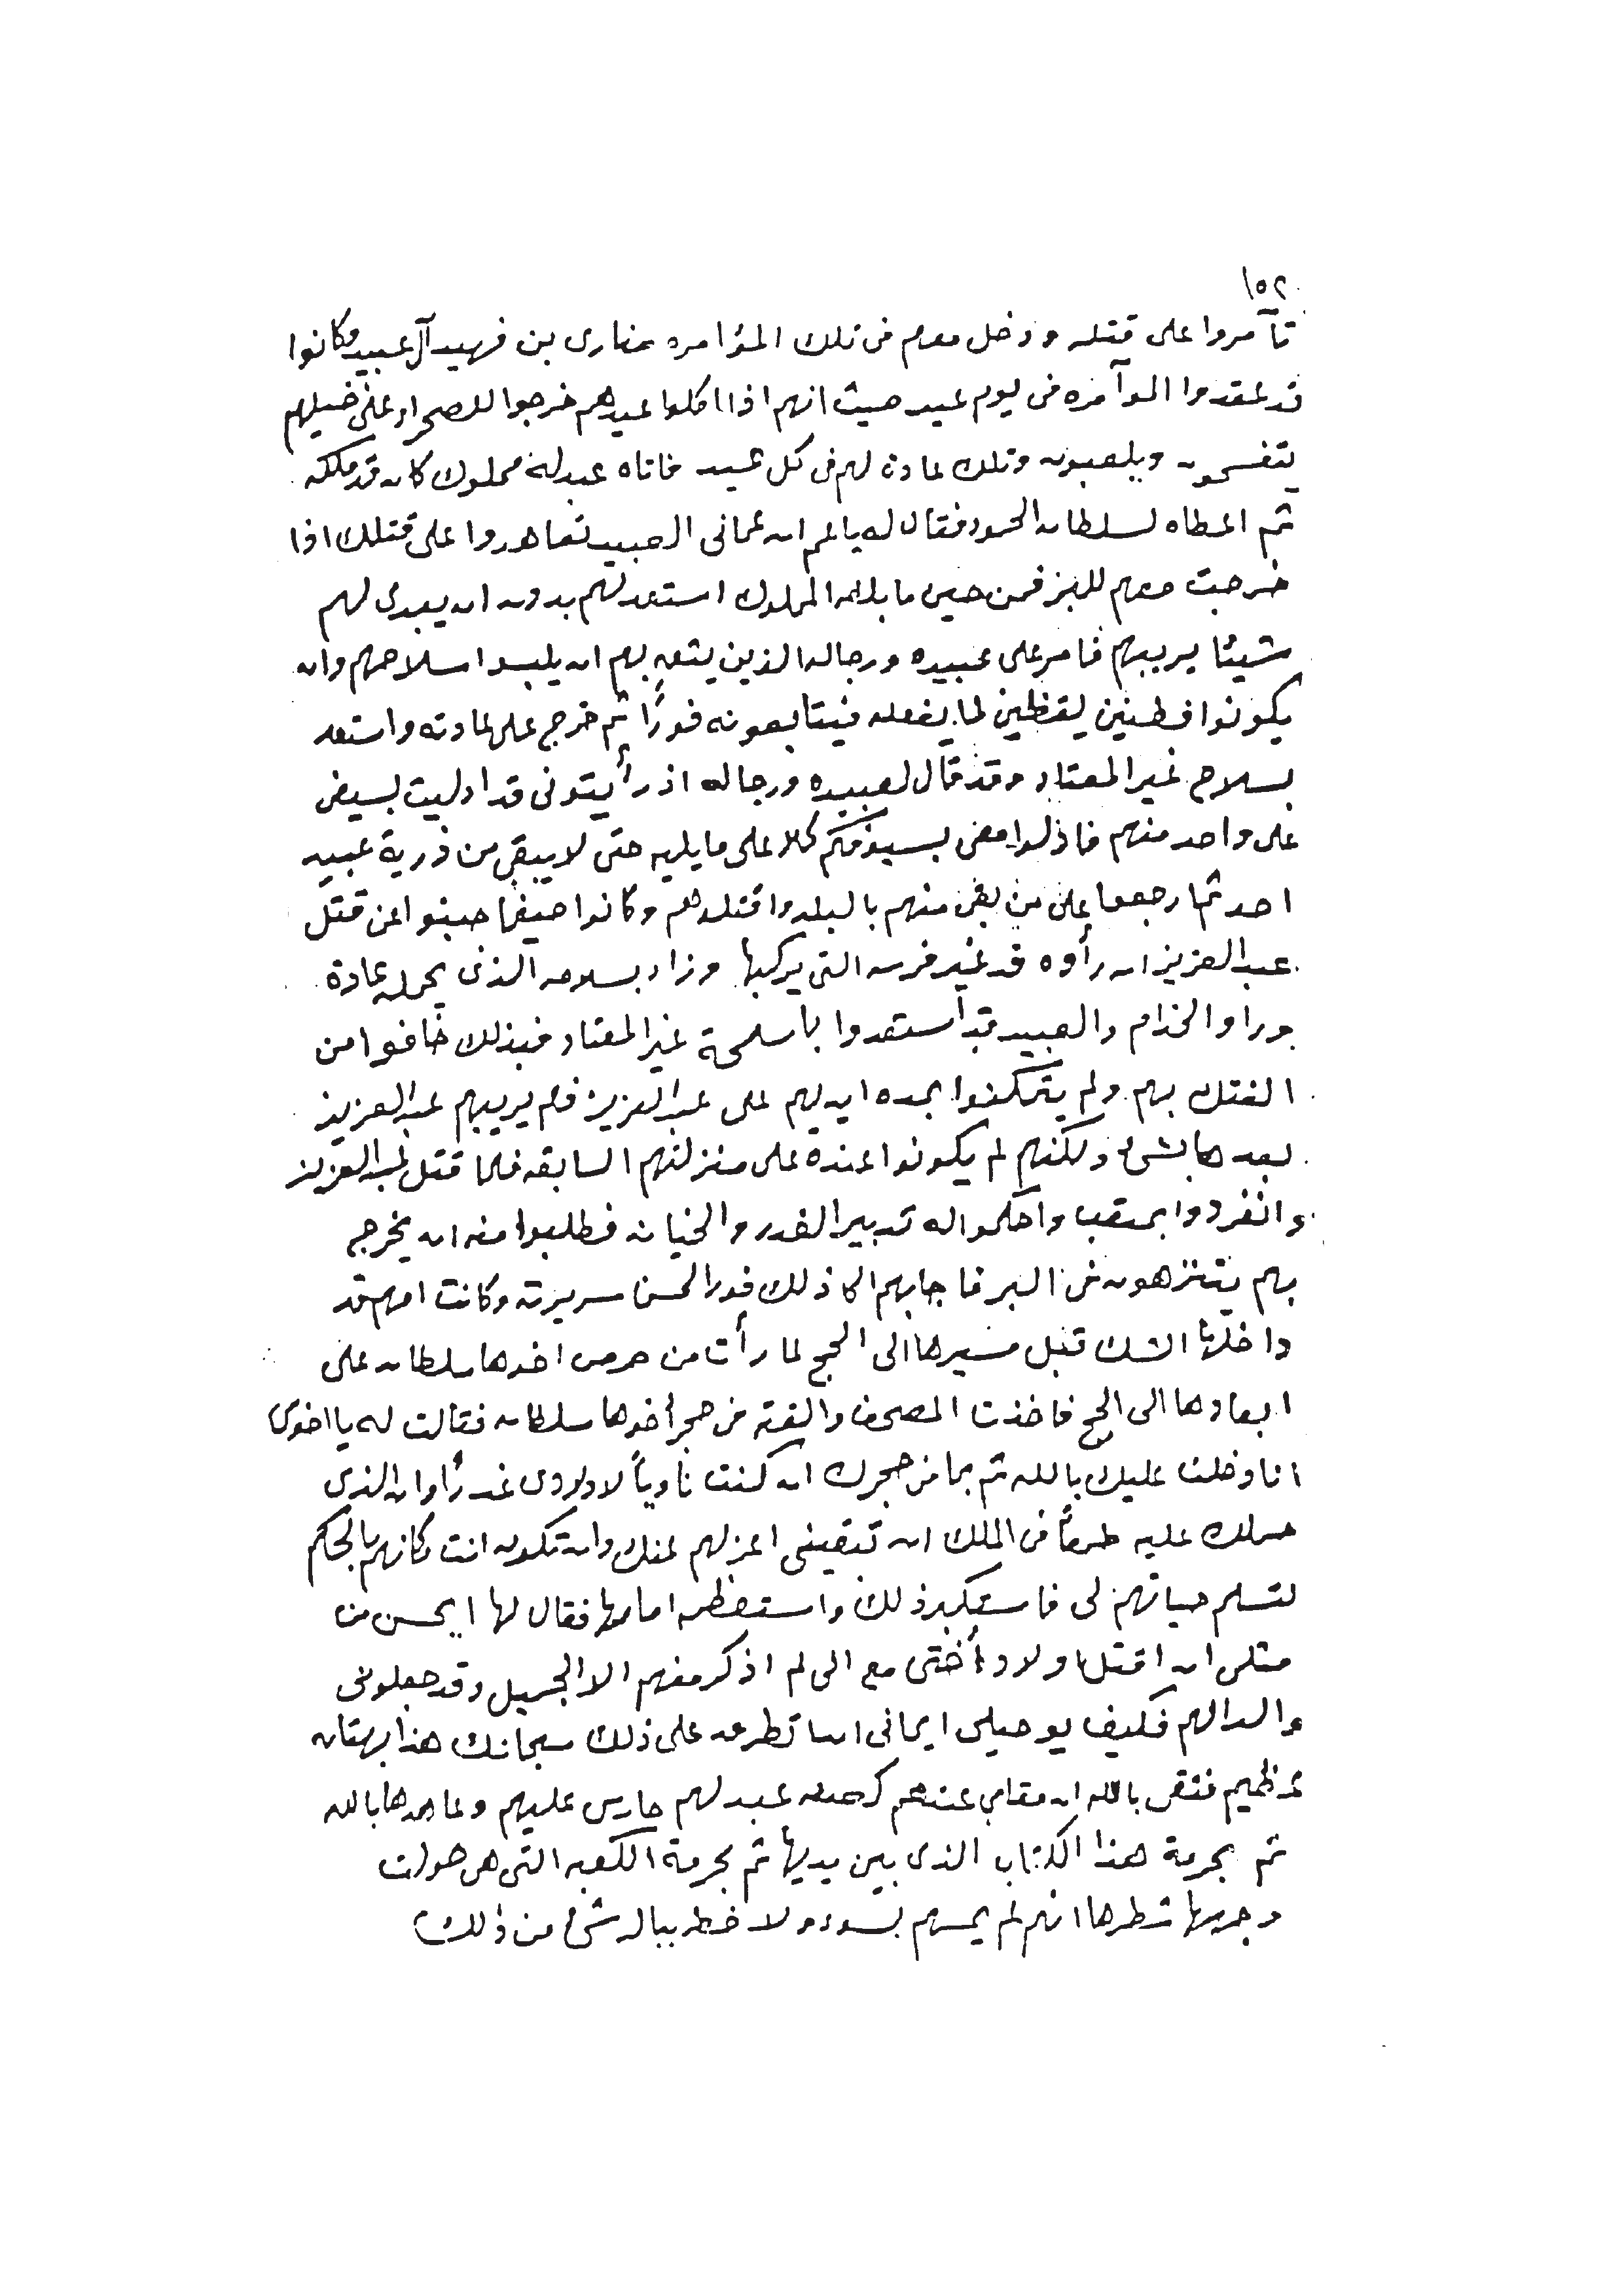 ١٥٢
تآمروا على قتله ودخل معهم في تلك المؤامره عذارى بن فهيد آل عبيد وكانوا
قد عقدوا الموآمره في يوم عيد حيث انهم اذا اكلوا عيدهم خرجوا للصحراء على خيلهم
يتفسحون ويلعبون وتلك عادة لهم في كل عيد فاتاه عبد له مملوك كان قد ملكه
ثم اعطاه لسلطان الحمود فقال له يا عم ان عماني العبيد تعاهدوا على قتلك اذا
خرجت معهم للبر فمن حين ما بلغه المملوك استعد لهم بدون ان يبدي لهم
شيئا يريبهم فامر على عبيده ورجاله الذين يثق بهم ان يلبسوا سلاحهم وان
يكونوا فطنين يقظين لما يفعله فيتابعونه فوراً ثم خرج على عادته واستعد
بسلاح غير المعتاد وقد قال لعبيده ورجاله اذ رأيتوني قد ادليت بسيفي
على واحد منهم فادلوا معي بسيوفكم كلا على ما يليه حتى لا يبقى من ذرية عبيد
احد ثم ارجعوا على من بقي منهم بالبلد واقتلوهم وكانوا حينها جبنوا عن قتل
عبد العزيز ان رأوه قد غير فرسه التي يركبها وزاد بسلاحه الذي يحمله عادة
وراو الخدام والعبيد قد أستعدوا بأسلحة غير المعتاد فبذلك خافوا من
الفتك بهم ولم يتمكنوا بمده ايديهم على عبد العزيز فلم يريبهم عبد العزيز
بعدها بشئ ولكنهم لم يكونوا عنده على منزلتهم السابقه فلما قتل عبد العزيز
وانفردوا بمتعب واحكموا له تدبير الغدر والخيانه فطلبوا منه ان يخرج
بهم يتنزهون في البر فاجابهم الا ذلك فورا لحسن سريرته وكانت امهم قد
داخلها الشك قبل مسيرها الى الحج لما رأت من حرص اخوها سلطان على
ابعادها الى الحج فاخذت المصحف والقته في حجر أخوها سلطان فقالت له يا اخوي
انا دخلت عليك بالله ثم بما في حجرك ان كنت ناوياً لاولادي غدراً وان الذي
حملك عليه طمعاً في الملك ان تبقيني اعزلهم عنك وان تكون انت مكانهم بالحكم
لتسلم حياتهم لي فاستكبر ذلك واستعظمه امامها فقال لها ايحسن من
مثلي ان اقتل اولاد أختي مع الى لم اذكر منهم الا الجميل وقد جعلوني
والدا لهم فكيف يوحيلي ايماني انسا تطرعه على ذلك سبحانك هذا بهتان
عظيم فثقي بالله ان مقامي عندهم كعبد لهم حارس عليهم وعاهدها بالله
ثم بحرمة هذا الكتاب الذي بين يديها ثم بحرمة الكعبه التي هي حولت
وجهها شطرها انه لم يمسهم بسوء ولا خطر بباله شئ من ذلك)